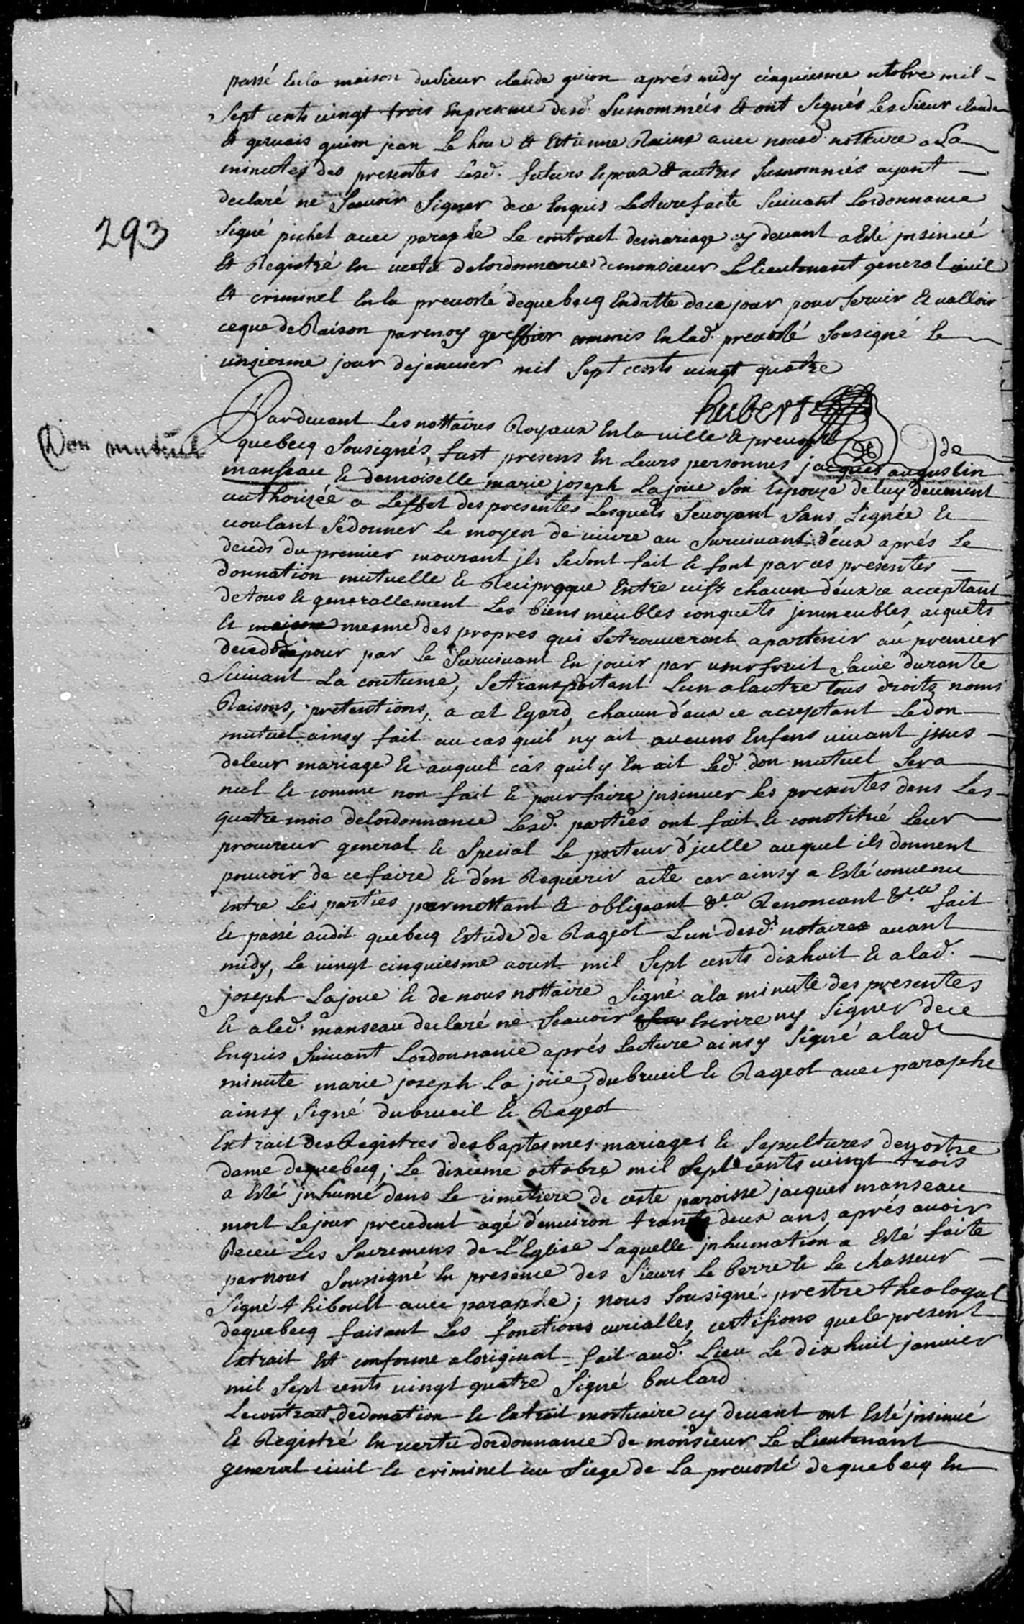 passé En la maison du Sieur claude guion aprés midy cinquiesme octobre mil
Sept cents vingt trois En presence desd. Surnommées Et ont Signés Les Sieur claude
Et gervais guion jean Le houx Et Estienne Racine avec nousd. nottaire a La
minutte des presentes Lesd. futurs Epoux & autres Surnommés ayant
declaré ne Scavoir Signer de ce Enquis Lecture faite Suivant Lordonnance
293
Signé pichet avec paraphe Le contract de mariage cy devant a Esté jnsinué
Et Registré En vertu de Lordonnance de monsieur Le Lieutenant general civil
Et criminel En la prevosté de quebecq En datte de ce jour pour Servir Et valloir
ce que de Raison par moy greffier commis En lad. prevosté Sousigné Le
unziesme jour de janvier mil Sept cents vingt quatre
hubert
Don mutuel
Pardevant Les nottaires Royaux En la ville & prevosté de
quebecq Sousignés, fust presens En Leurs personnes jacques augustin
manseau & demoiselle marie joseph Lajoue Son Epouze de luy deuement
authorizée a L'effet des presentes Lesquels Se voyant Sans Lignée &
voulant Se donner Le moyen de vivre au Survivant d'eux aprés Le
deceds du premier mourant jls Se sont fait & font par ces presentes
donnation mutuelle & Reciproque Entre vifs chacun d'eux ce acceptant
de tous & generallement Les biens meubles conquets jmmeubles, aiquets
& mesme des propres qui Se trouveront apartenir au premier
decedé pour par Le Survivant En jouir par usufruit Sa vie durante
Suivant La coutume, Se transportant L'un a lautre tous droits noms
Raisons, pretentions, a cet Egard, chacun d'eux ce acceptant Le don
mutuel ainsy fait au cas quil ny ait aucuns Enfens vivant jssus
de leur mariage & auquel cas quil y En ait Led. don mutuel Sera
nul & comme non fait & pour faire jnsinuer les presentes dans Les
quatre mois de lordonnance Lesd. parties ont fait & constitué Leur
procureur general & Special Le porteur d'jcelle auquel ils donnent
pouvoir de ce faire & d'en Requerir acte car ainsy a Esté convenu
entre Les parties promettant & obligeant &ca Renoncant &ca fait
& passé audit quebecq Estude de Rageot L'un desd. notaires avant
midy, Le vingt cinquiesme aoust mil Sept cents dix huit & a lad.
joseph Lajoue & de nous nottaire Signé a la minute des presentes
& a led. manseau declaré ne Scavoir Escrire ny Signer de ce
Enquis Suivant Lordonnance aprés Lecture ainsy Signé a lad.
minute marie joseph La joüe, dubreuil & Rageot avec paraphe
ainsy Signé dubreuil & Rageot
Extrait des Registres des baptesmes mariages & Sepultures de nostre
dame de quebecq; Le dixieme octobre mil Sept cents vingt trois
a Esté jnhumé dans Le cimetiere de ceste paroisse jacques manseau
mort Le jour precedent agé d'environ trante deux ans aprés avoir
Receu Les Sacremens de L'Eglise Laquelle jnhumation a Esté faite
par nous Soussigné En presence des Sieurs Le berre & Le chasseur
Signé thiboult avec paraphe; nous Sousigné prestre theologal
de quebecq faisant Les fonctions curialles, certifions que le present
Extrait Est conforme a loriginal fait aud. Lieu Le dix huit janvier
mil Sept cents vingt quatre Signé boulard
Le contract de donation & Extrait mortuaire cy devant ont Esté jnsinué
& Registré En vertu dordonnance de monsieur Le Lieutenant
general civil & criminel au Siege de La prevosté de quebecq En